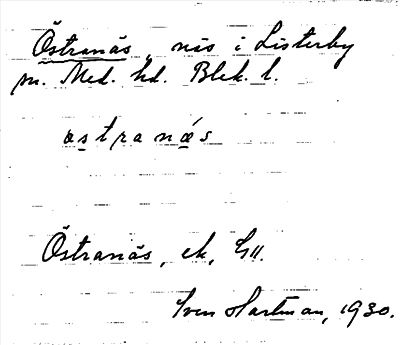 Östranäs, näs i Listerby
sn. Med. hd. Blek. l.
östranä́s
Östranäs, ek,
Sven Hartman, 1930.